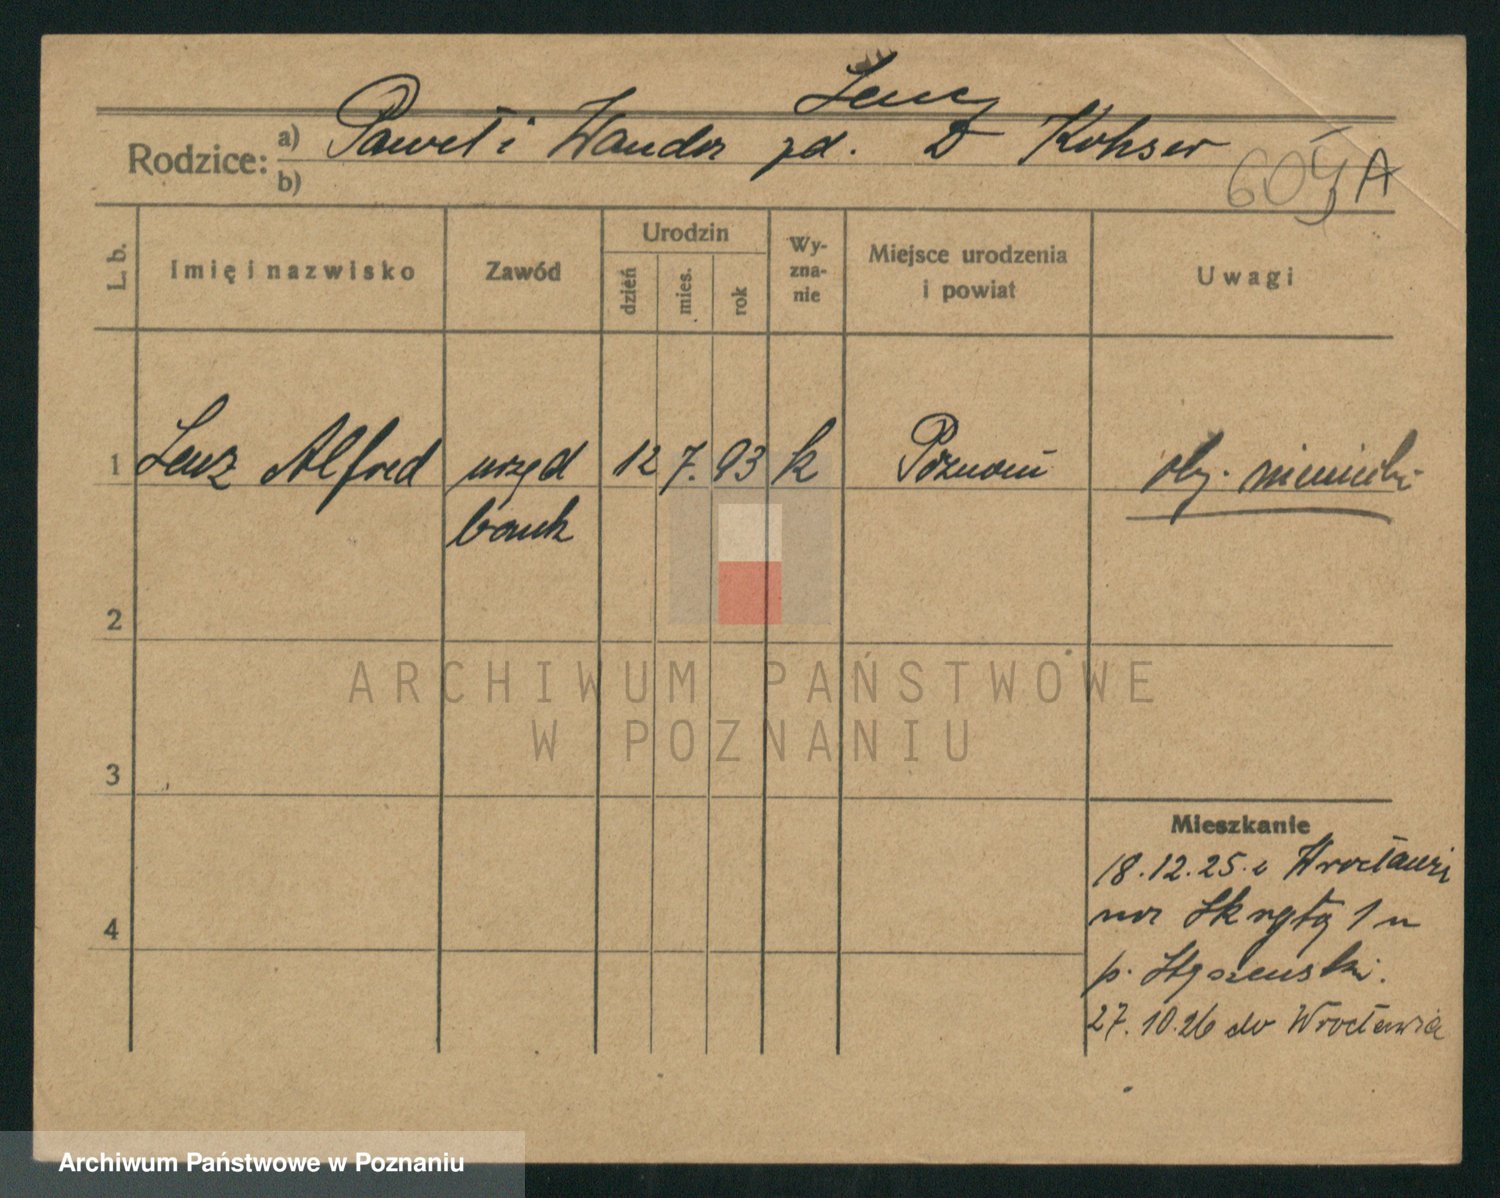 Lenz
Rodzice: a) Paweł i Wanda zd. D Kohser
b)
604 A
L. b.
Imię i nazwisko
Zawód
Urodzin
dzień
mies.
rok
Wy-
zna-
nie
Miejsce urodzenia
i powiat
Uwagi
1 Lenz Alfred urzęd 12 7. 93 k Poznań oby. niemiecki
bank
2
3
4
Mieszkanie
18.12.25. z Wrocławi
na Skrytą 1 u
p.
27.10.26 do Wrocławia
ARCHIWUM PAŃSTWOWE
W POZNANIU
Archiwum Państwowe w Poznaniu